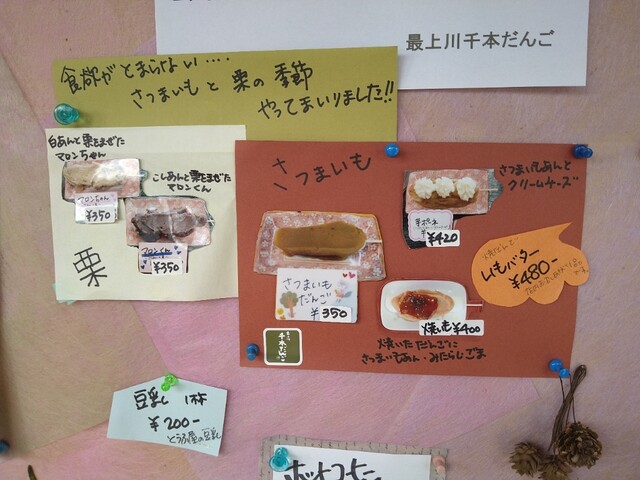 最上川千本だんご
食欲がとまらない....
さつまいもと栗の季節
やってまいりました!!
白あんと栗をまぜた
マロンちゃん
マロンちゃん
¥350
こしあんと栗をまぜた
マロンくん
マロンくん
¥350
栗
さつまいも
さつまいもあんと
クリームチーズ
¥420
さつまいも
だんご
¥350
いもバター
¥480-
焼いも¥400
焼いただんごに
さつまいもあん・みたらしごま
千本だんご
豆乳 1杯
¥200-
とうふ屋の豆乳